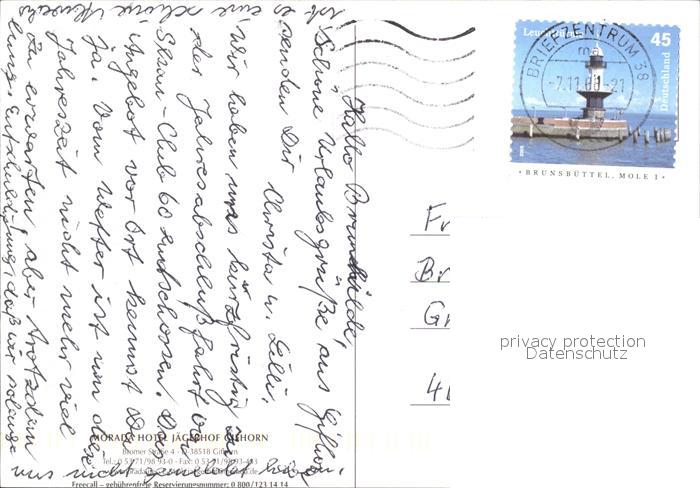 Hallo Brunhilde,
Schöne Urlaubsgrüße aus Gifhorn,
senden Dir
Christa u. Lilli.
Wir haben uns kurzfristig zu
der Jahresabschlußfahrt von
Skan-Club 60 entschlossen. Das
Angebot vor Ort kennst Du
ja. Vom Wetter ist um diese
Jahreszeit nicht mehr viel
zu erwarten aber trotzdem
ist es eine schöne
Entschuldigung, daß wir solange
uns nicht gemeldet haben
MORADA HOTEL JÄGERHOF GIFHORN
Bromer Straße 4 · D-38518 Gifhorn
Tel.: 0 53 71/98 93-0 · Fax: 0 53 71/98 93-433
Freecall – gebührenfreie Reservierungsnummer: 0 800/123 14 14
Leuchttürme
45
Deutschland
BRIEFZENTRUM 38
BRUNSBÜTTEL, MOLE 1
Fr
Br
Gr
privacy protection
Datenschutz